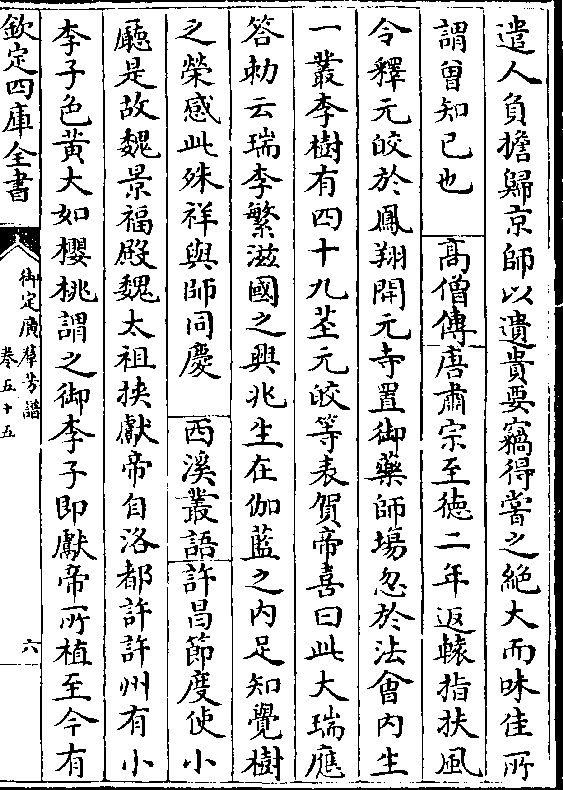 遣人負擔歸京師以遺貴要竊得嘗之絶大而味佳所
謂曾知已也　高僧傳唐肅宗至徳二年返轅指扶風
令釋元皎於鳳翔開元寺置御藥師塲忽於法會内生
一叢李樹有四十九莖元皎等表賀帝喜曰此大瑞應
答勅云瑞李繁滋國之興兆生在伽藍之内足知覺樹
之榮感此殊祥與師同慶　西溪叢語許昌節度使小
廳是故魏景福殿魏太祖挟獻帝自洛都許許州有小
李子色黄大如櫻桃謂之御李子即獻帝所植至今有
欽定四庫全書
御定廣羣芳譜
卷五十五
六